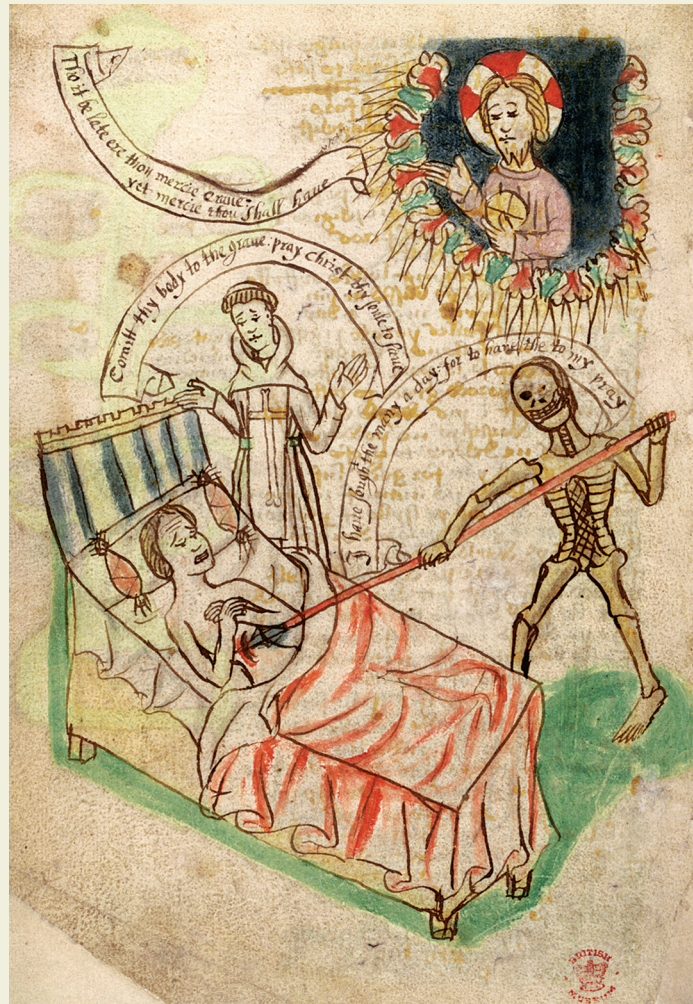 Tho it be late ere thou mercie crave:
yet mercie thou shall have
Comitt thy body to the grave: pray Christ thy soule to save
I have sought the many a day: for to have the to my pray
BRITISH
MUSEUM